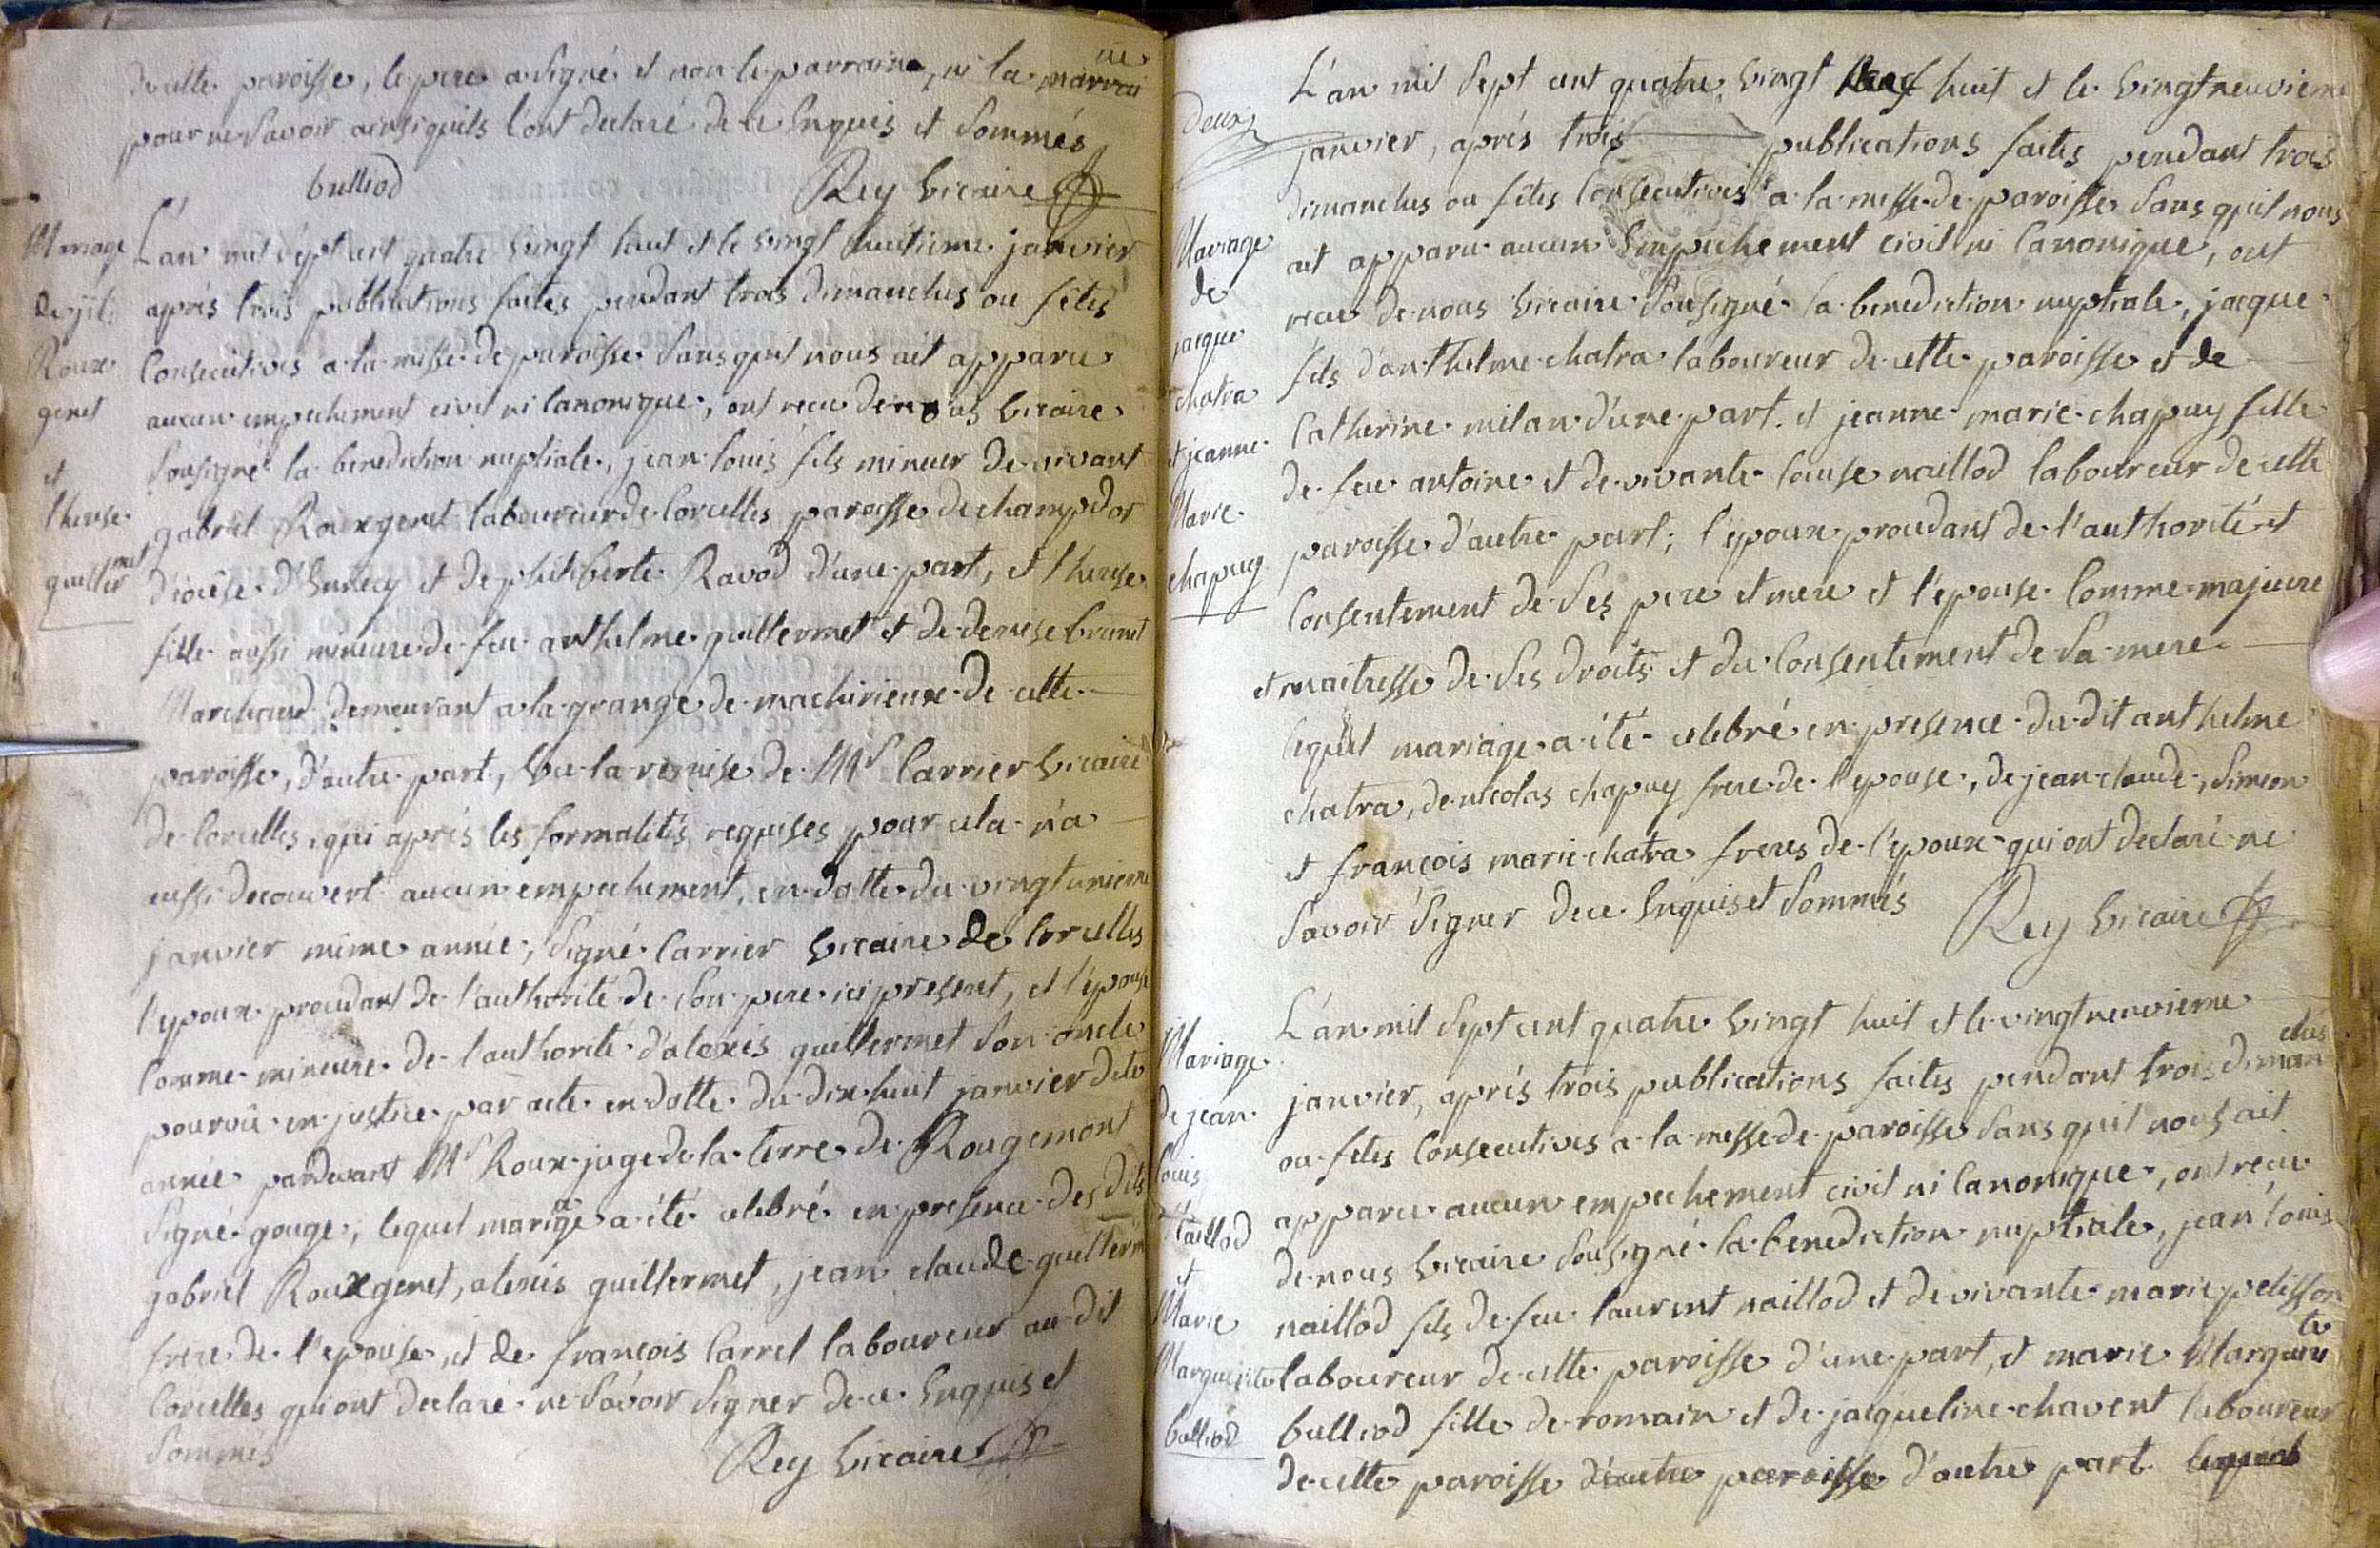 de cette paroisse, le pere a signé et non le parrain, ni la marrai
ne
pour ne savoir ainsi quils l'ont declaré de ce enquis et sommés
bulliod
Rey vicaire
Mariage
de
Roux
genet
et
therese
guiller
met
L'an mil sept cent quatre vingt huit et le vingt huitieme janvier
aprés trois publications faites pendant trois dimanches ou fêtes
consecutives a la messe de paroisse sans quil nous ait apparu
aucun empechement civil ni canonique, ont recu de nous vicaire
sousigné la benediction nuptiale, jean louis fils mineur de vivant
gabriel Rouxgenet laboureur de Corcelles paroisse de champdor
diocése d'Ennecy et de philiberte Ravod d'une part, et therese
fille aussi mineure de feu anthelme guillermet et de denise brunet
Marchand demeurant a la grange de machirieux de cette
paroisse, d'autre part, vu la remise de Mr Carrier vicaire
de Corcelles, qui aprés les formalités requises pour cela n'a
aussi decouvert aucun empechement, en datte du vingt unieme
janvier même année, signé Carrier vicaire de Corcelles
l'epoux procedant de l'authorité de son pere ici present, et l'épouse
comme mineure de l'authorité d'alexis guillermet son oncle
pourvû en justice par acte en datte du dix huit janvier dite
année pardevant Mr Roux juge de la terre de Rougemont
signé gouge, lequel mariage a été celebré en presence des dits
gabriel Rouxgenet, alexis guillermet, jean claude guillerm
frere de l'epouse, et de françois Carrel laboureur au dit
Corcelles qui ont declaré ne savoir signer de ce enquis et
sommés
Rey vicaire
Deux
Mariage
de
jacque
chatra
et jeanne
Marie
chapuy
L'an mil sept cent quatre vingt huit et le vingtneuvieme
janvier, aprés trois publications faites pendant trois
dimanches ou fêtes consecutives a la messe de paroisse sans quil nous
ait apparu aucun empechement civil ni canonique, ont
recu de nous vicaire sousigné la benediction nuptiale, jacque
fils d'anthelme chatra laboureur de cette paroisse et de
Catherine milan d'une part. et jeanne marie chapuy fille
de feu antoine et de vivante louise naillod laboureur de cette
paroisse d'autre part; l'epoux procedant de l'authorité et
consentement de ses pere et mere et l'épouse comme majeure
et maitresse de ses droits et du consentement de sa mere
lequel mariage a été celebré en presence du dit anthelme
chatra, de nicolas chapuy frere de l'epouse, de jean claude, simeon
et françois marie chatra freres de l'époux qui ont declaré ne
savoir signer de ce enquis et sommés
Rey vicaire
Mariage
de jean
louis
naillod
et
Marie
Marguerite
bulliod
L'an mil sept cent quatre vingt huit et le vingtneuvieme
janvier, aprés trois publications faites pendant trois diman
ches
ou fetes consecutives a la messe de paroisse sans quil nous ait
apparu aucun empechement civil ni canonique, ont reçu
de nous vicaire sousigné la benediction nuptiale, jean louis
naillod fils de feu laurent naillod et de vivante marie pelisson
laboureur de cette paroisse d'une part, et marie Margueri
te
bulliod fille de romain et de jacqueline chavent laboureur
de cette paroisse d'autre paroisse d'autre part